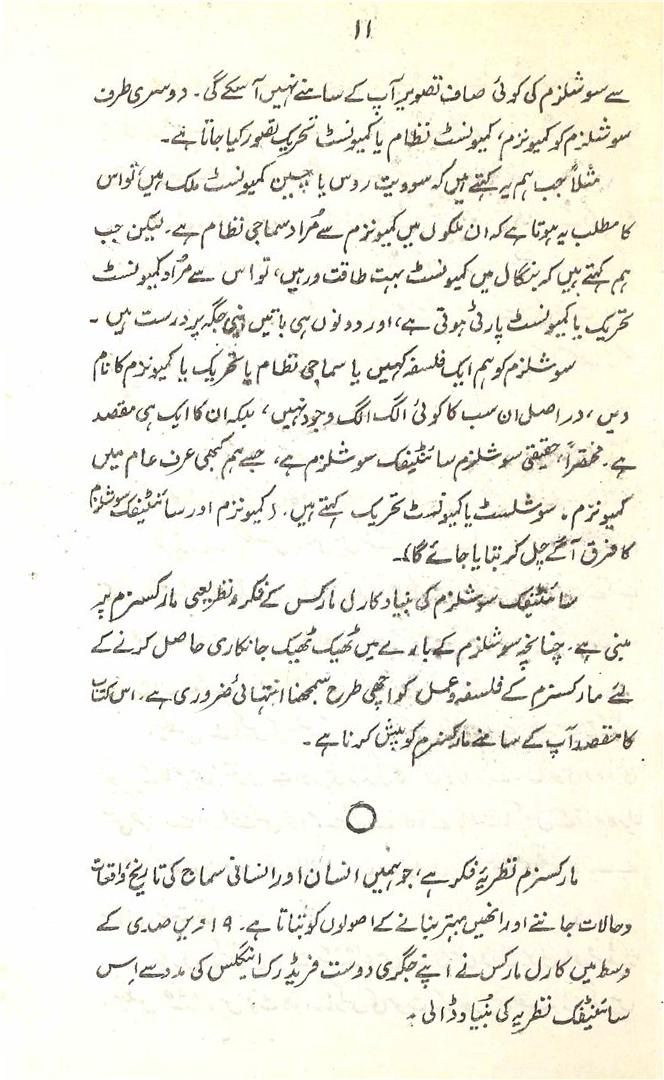 ۱۱
سے سوشلزم کی کوئی صاف تصویر آپ کے سامنے نہیں آسکے گی۔ دوسری طرف
سوشلزم کو کمیونزم، کمیونسٹ نظام یا کمیونسٹ تحریک تصور کیا جاتا ہے۔
مثلاً جب ہم یہ کہتے ہیں کہ سوویت روس یا چین کمیونسٹ ملک ہیں، تو اس
کا مطلب یہ ہوتا ہے کہ ان ملکوں میں کمیونزم سے مُراد سماجی نظام ہے۔ لیکن جب
ہم کہتے ہیں کہ بنگال میں کمیونسٹ بہت طاقت ور ہیں، تو اس سے مُراد کمیونسٹ
تحریک یا کمیونسٹ پارٹی ہوتی ہے، اور دونوں ہی باتیں اپنی جگہ پر درست ہیں ۔
سوشلزم کو ہم ایک فلسفہ کہیں یا سماجی نظام یا تحریک یا کمیونزم کا نام
دیں، دراصل ان سب کا کوئی الگ الگ وجود نہیں، بلکہ ان کا ایک ہی مقصد
ہے۔ مختصراً، حقیقی سوشلزم سائنٹیفک سوشلزم ہے، جسے ہم کبھی عرف عام میں
کمیونزم، سوشلسٹ یا کمیونسٹ تحریک کہتے ہیں۔ (کمیونزم اور سائنٹیفک سوشلزم
کا فرق آگے چل کر بتایا جائے گا)۔
سائنٹیفک سوشلزم کی بنیاد کارل مارکس کے فکر و نظر یعنی مارکسزم پر
مبنی ہے۔ چنانچہ سوشلزم کے بارے میں ٹھیک ٹھیک جانکاری حاصل کرنے کے
لئے مارکسزم کے فلسفہ و عمل کو اچھی طرح سمجھنا انتہائی ضروری ہے۔ اس کتاب
کا مقصد آپ کے سامنے مارکسزم کو پیش کرنا ہے۔
مارکسزم نظریۂ فکر ہے، جو ہمیں انسان اور انسانی سماج کی تاریخ، واقعات
و حالات جاننے اور انھیں بہتر بنانے کے اصولوں کو بتاتا ہے۔ ۱۹ ویں صدی کے
وسط میں کارل مارکس نے اپنے جگری دوست فریڈرک اینگلس کی مدد سے اِس
سائنٹیفک نظریہ کی بُنیاد ڈالی۔